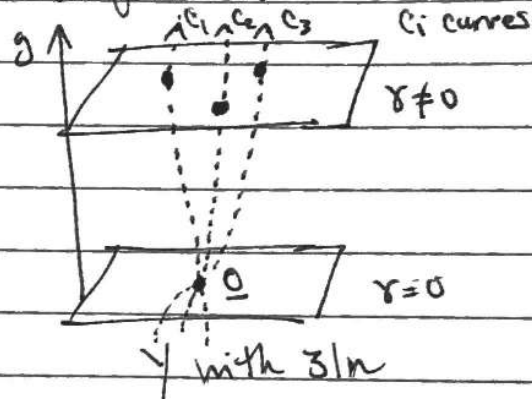 C₁ C₂ C₃ Cᵢ curves
g
γ≠0
0
γ=0
with 3|n